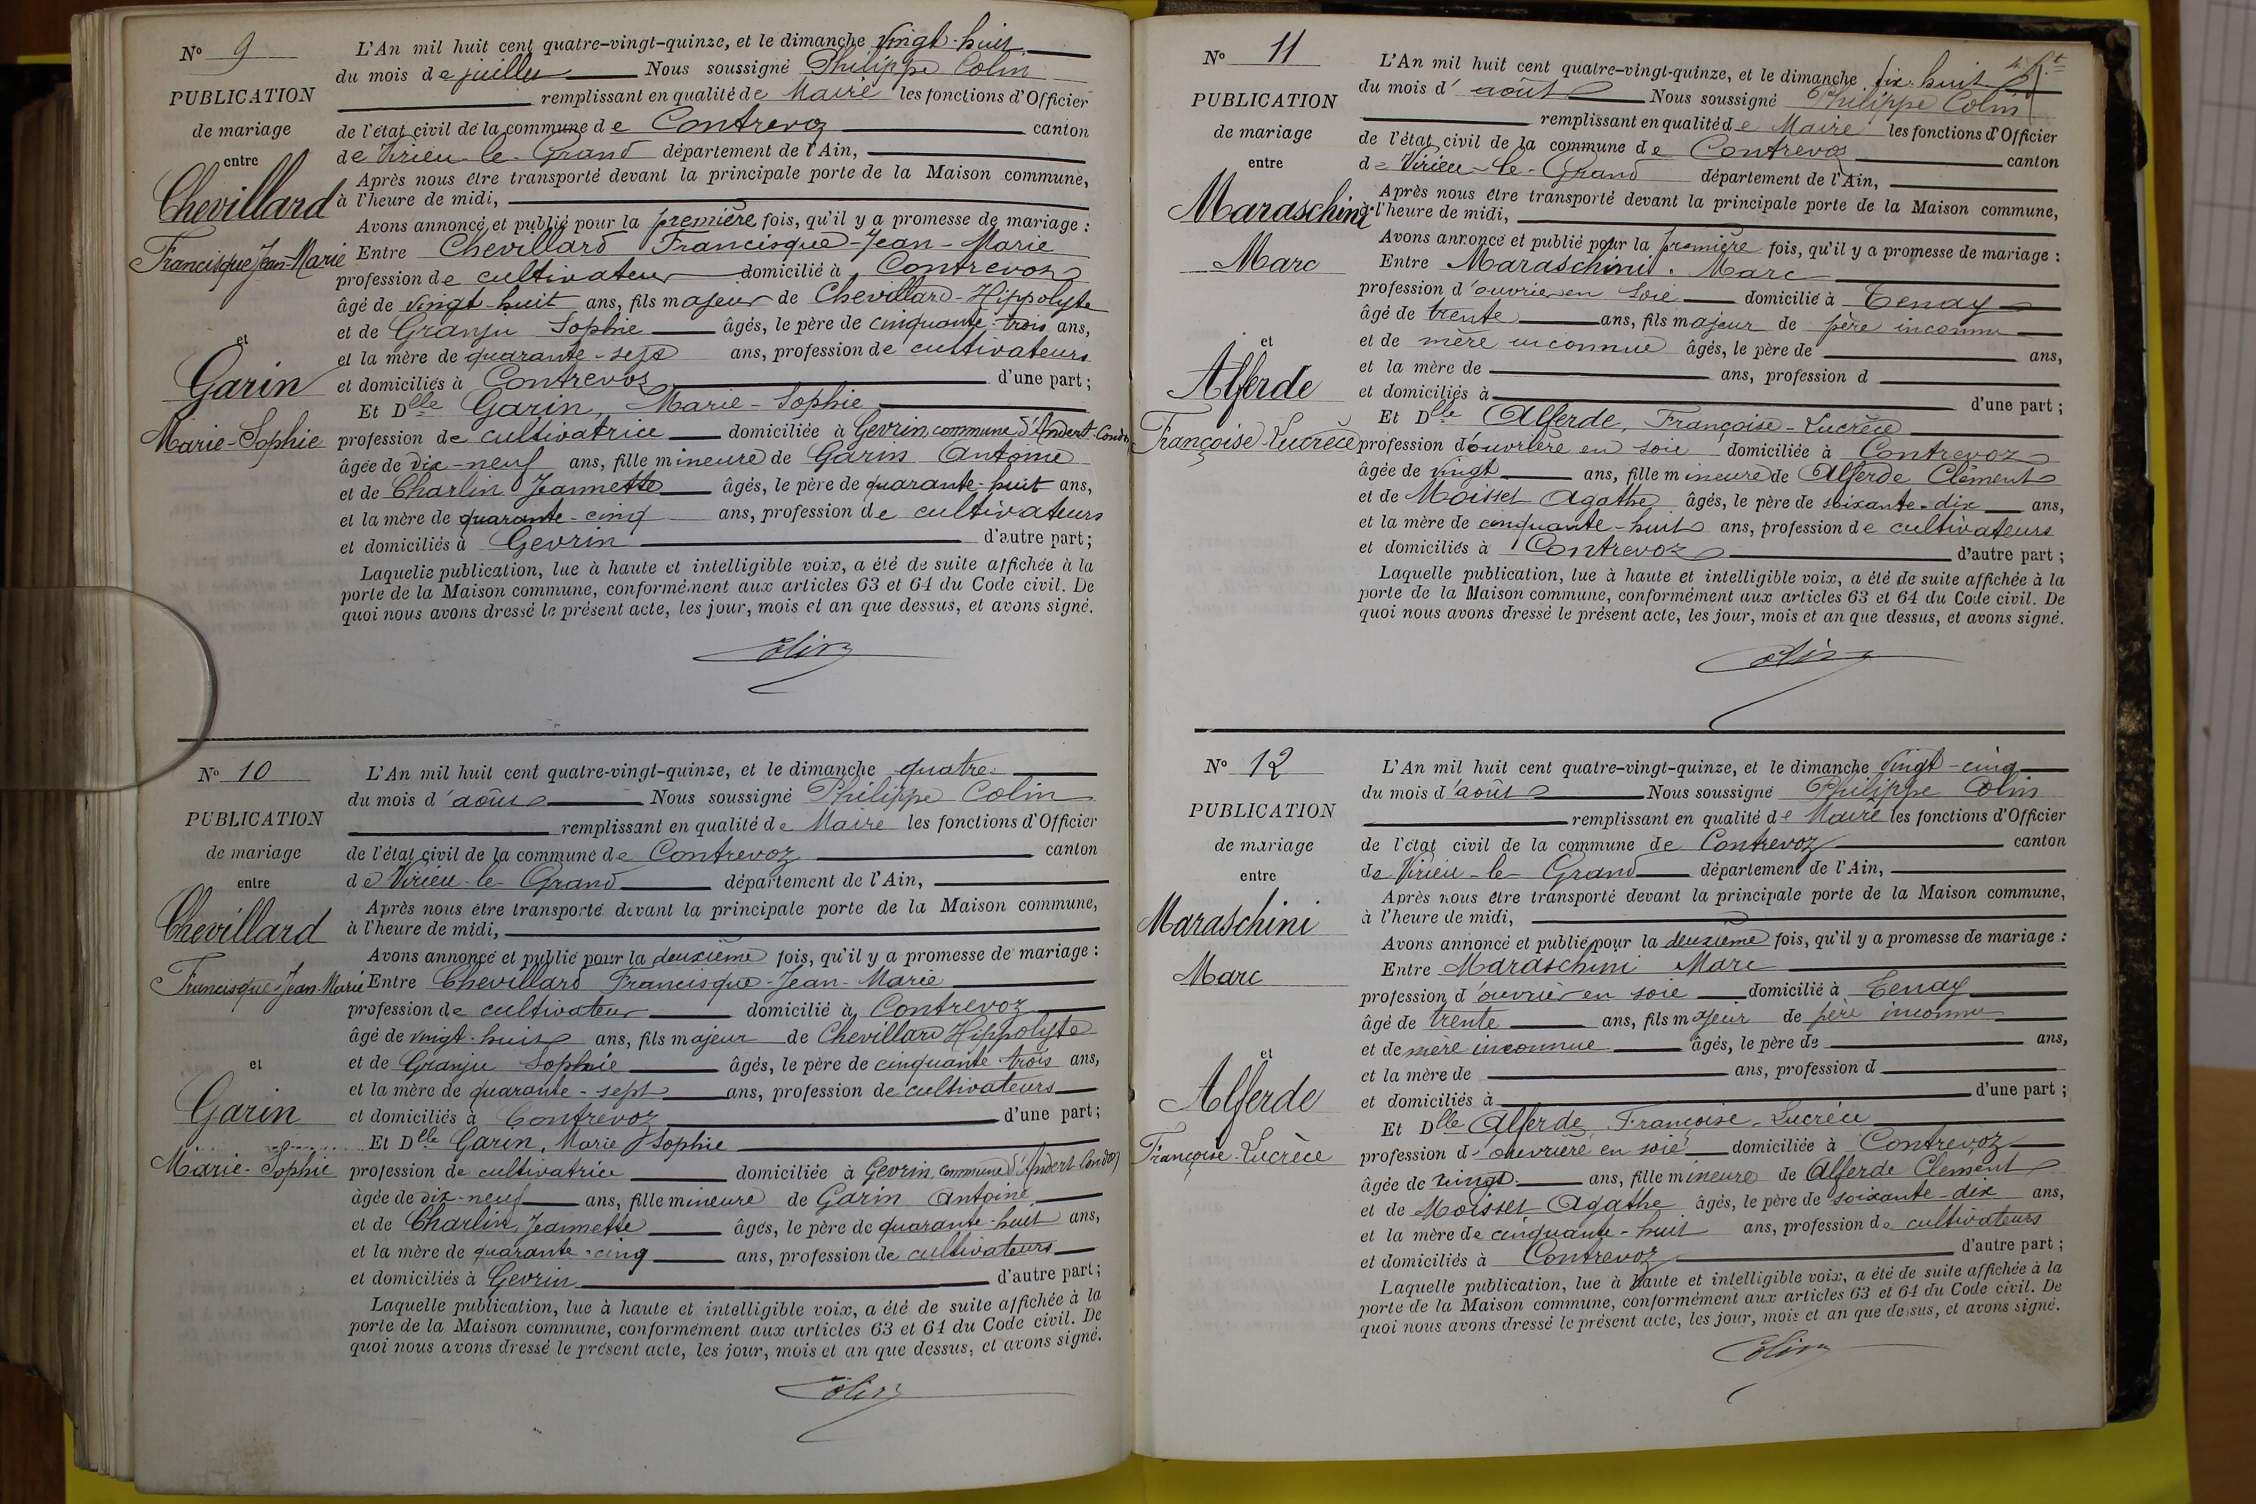 N° 9
PUBLICATION
de mariage
entre
Chevillard
Francisque Jean-Marie
et
Garin
Marie-Sophie
L'An mil huit cent quatre-vingt-quinze, et le dimanche vingt-huit
du mois de juillet Nous soussigné Philippe Colin
remplissant en qualité de Maire les fonctions d'Officier
de l'état civil de la commune de Contrevoz canton
de Virieu-le-Grand département de l'Ain,
Après nous être transporté devant la principale porte de la Maison commune,
à l'heure de midi,
Avons annoncé et publié pour la première fois, qu'il y a promesse de mariage :
Entre Chevillard Francisque-Jean-Marie
profession de cultivateur domicilié à Contrevoz
âgé de vingt-huit ans, fils majeur de Chevillard-Hippolyte
et de Granju Sophie âgés, le père de cinquante-trois ans,
et la mère de quarante-sept ans, profession de cultivateurs
et domiciliés à Contrevoz d'une part ;
Et Dlle Garin, Marie-Sophie
profession de cultivatrice domiciliée à Gevrin commune d'Andert-Condon
âgée de dix-neuf ans, fille mineure de Garin Antoine
et de Charlin Jeannette âgés, le père de quarante-huit ans,
et la mère de quarante-cinq ans, profession de cultivateurs
et domiciliés à Gevrin d'autre part ;
Laquelle publication, lue à haute et intelligible voix, a été de suite affichée à la
porte de la Maison commune, conformément aux articles 63 et 64 du Code civil. De
quoi nous avons dressé le présent acte, les jour, mois et an que dessus, et avons signé.
Colin
N° 10
PUBLICATION
de mariage
entre
Chevillard
Francisque-Jean-Marie
et
Garin
Marie-Sophie
L'An mil huit cent quatre-vingt-quinze, et le dimanche quatre
du mois d'août Nous soussigné Philippe Colin
remplissant en qualité de Maire les fonctions d'Officier
de l'état civil de la commune de Contrevoz canton
de Virieu-le-Grand département de l'Ain,
Après nous être transporté devant la principale porte de la Maison commune,
à l'heure de midi,
Avons annoncé et publié pour la deuxième fois, qu'il y a promesse de mariage :
Entre Chevillard Francisque-Jean-Marie
profession de cultivateur domicilié à Contrevoz
âgé de vingt-huit ans, fils majeur de Chevillard Hippolyte
et de Granju Sophie âgés, le père de cinquante-trois ans,
et la mère de quarante-sept ans, profession de cultivateurs
et domiciliés à Contrevoz d'une part ;
Et Dlle Garin, Marie Sophie
profession de cultivatrice domiciliée à Gevrin, commune d'Andert Condon
âgée de dix-neuf ans, fille mineure de Garin Antoine
et de Charlin, Jeannette âgés, le père de quarante-huit ans,
et la mère de quarante-cinq ans, profession de cultivateurs
et domiciliés à Gevrin d'autre part ;
Laquelle publication, lue à haute et intelligible voix, a été de suite affichée à la
porte de la Maison commune, conformément aux articles 63 et 64 du Code civil. De
quoi nous avons dressé le présent acte, les jour, mois et an que dessus, et avons signé.
Colin
N° 11
PUBLICATION
de mariage
entre
Maraschini
Marc
et
Alferde
Françoise-Lucrèce
L'An mil huit cent quatre-vingt-quinze, et le dimanche dix-huit
du mois d'août Nous soussigné Philippe Colin
remplissant en qualité de Maire les fonctions d'Officier
de l'état civil de la commune de Contrevoz canton
de Virieu-le-Grand département de l'Ain,
Après nous être transporté devant la principale porte de la Maison commune,
à l'heure de midi,
Avons annoncé et publié pour la première fois, qu'il y a promesse de mariage :
Entre Maraschini. Marc
profession d'ouvrier en soie domicilié à Tenay
âgé de trente ans, fils majeur de père inconnu
et de mère inconnue âgés, le père de ans,
et la mère de ans, profession d
et domiciliés à d'une part ;
Et Dlle Alferde, Françoise-Lucrèce
profession d'ouvrière en soie domiciliée à Contrevoz
âgée de vingt ans, fille mineure de Alferde Clément
et de Moisset Agathe âgés, le père de soixante-dix ans,
et la mère de cinquante-huit ans, profession de cultivateurs
et domiciliés à Contrevoz d'autre part ;
Laquelle publication, lue à haute et intelligible voix, a été de suite affichée à la
porte de la Maison commune, conformément aux articles 63 et 64 du Code civil. De
quoi nous avons dressé le présent acte, les jour, mois et an que dessus, et avons signé.
Colin
N° 12
PUBLICATION
de mariage
entre
Maraschini
Marc
et
Alferde
Françoise-Lucrèce
L'An mil huit cent quatre-vingt-quinze, et le dimanche vingt-cinq
du mois d'août Nous soussigné Philippe Colin
remplissant en qualité de Maire les fonctions d'Officier
de l'état civil de la commune de Contrevoz canton
de Virieu-le-Grand département de l'Ain,
Après nous être transporté devant la principale porte de la Maison commune,
à l'heure de midi,
Avons annoncé et publié pour la deuxième fois, qu'il y a promesse de mariage :
Entre Maraschini Marc
profession d'ouvrier en soie domicilié à Tenay
âgé de trente ans, fils majeur de père inconnu
et de mère inconnue âgés, le père de ans,
et la mère de ans, profession d
et domiciliés à d'une part ;
Et Dlle Alferde, Françoise-Lucrèce
profession d'ouvrière en soie domiciliée à Contrevoz
âgée de vingt ans, fille mineure de Alferde Clément
et de Moisset Agathe âgés, le père de soixante-dix ans,
et la mère de cinquante-huit ans, profession de cultivateurs
et domiciliés à Contrevoz d'autre part ;
Laquelle publication, lue à haute et intelligible voix, a été de suite affichée à la
porte de la Maison commune, conformément aux articles 63 et 64 du Code civil. De
quoi nous avons dressé le présent acte, les jour, mois et an que dessus, et avons signé.
Colin